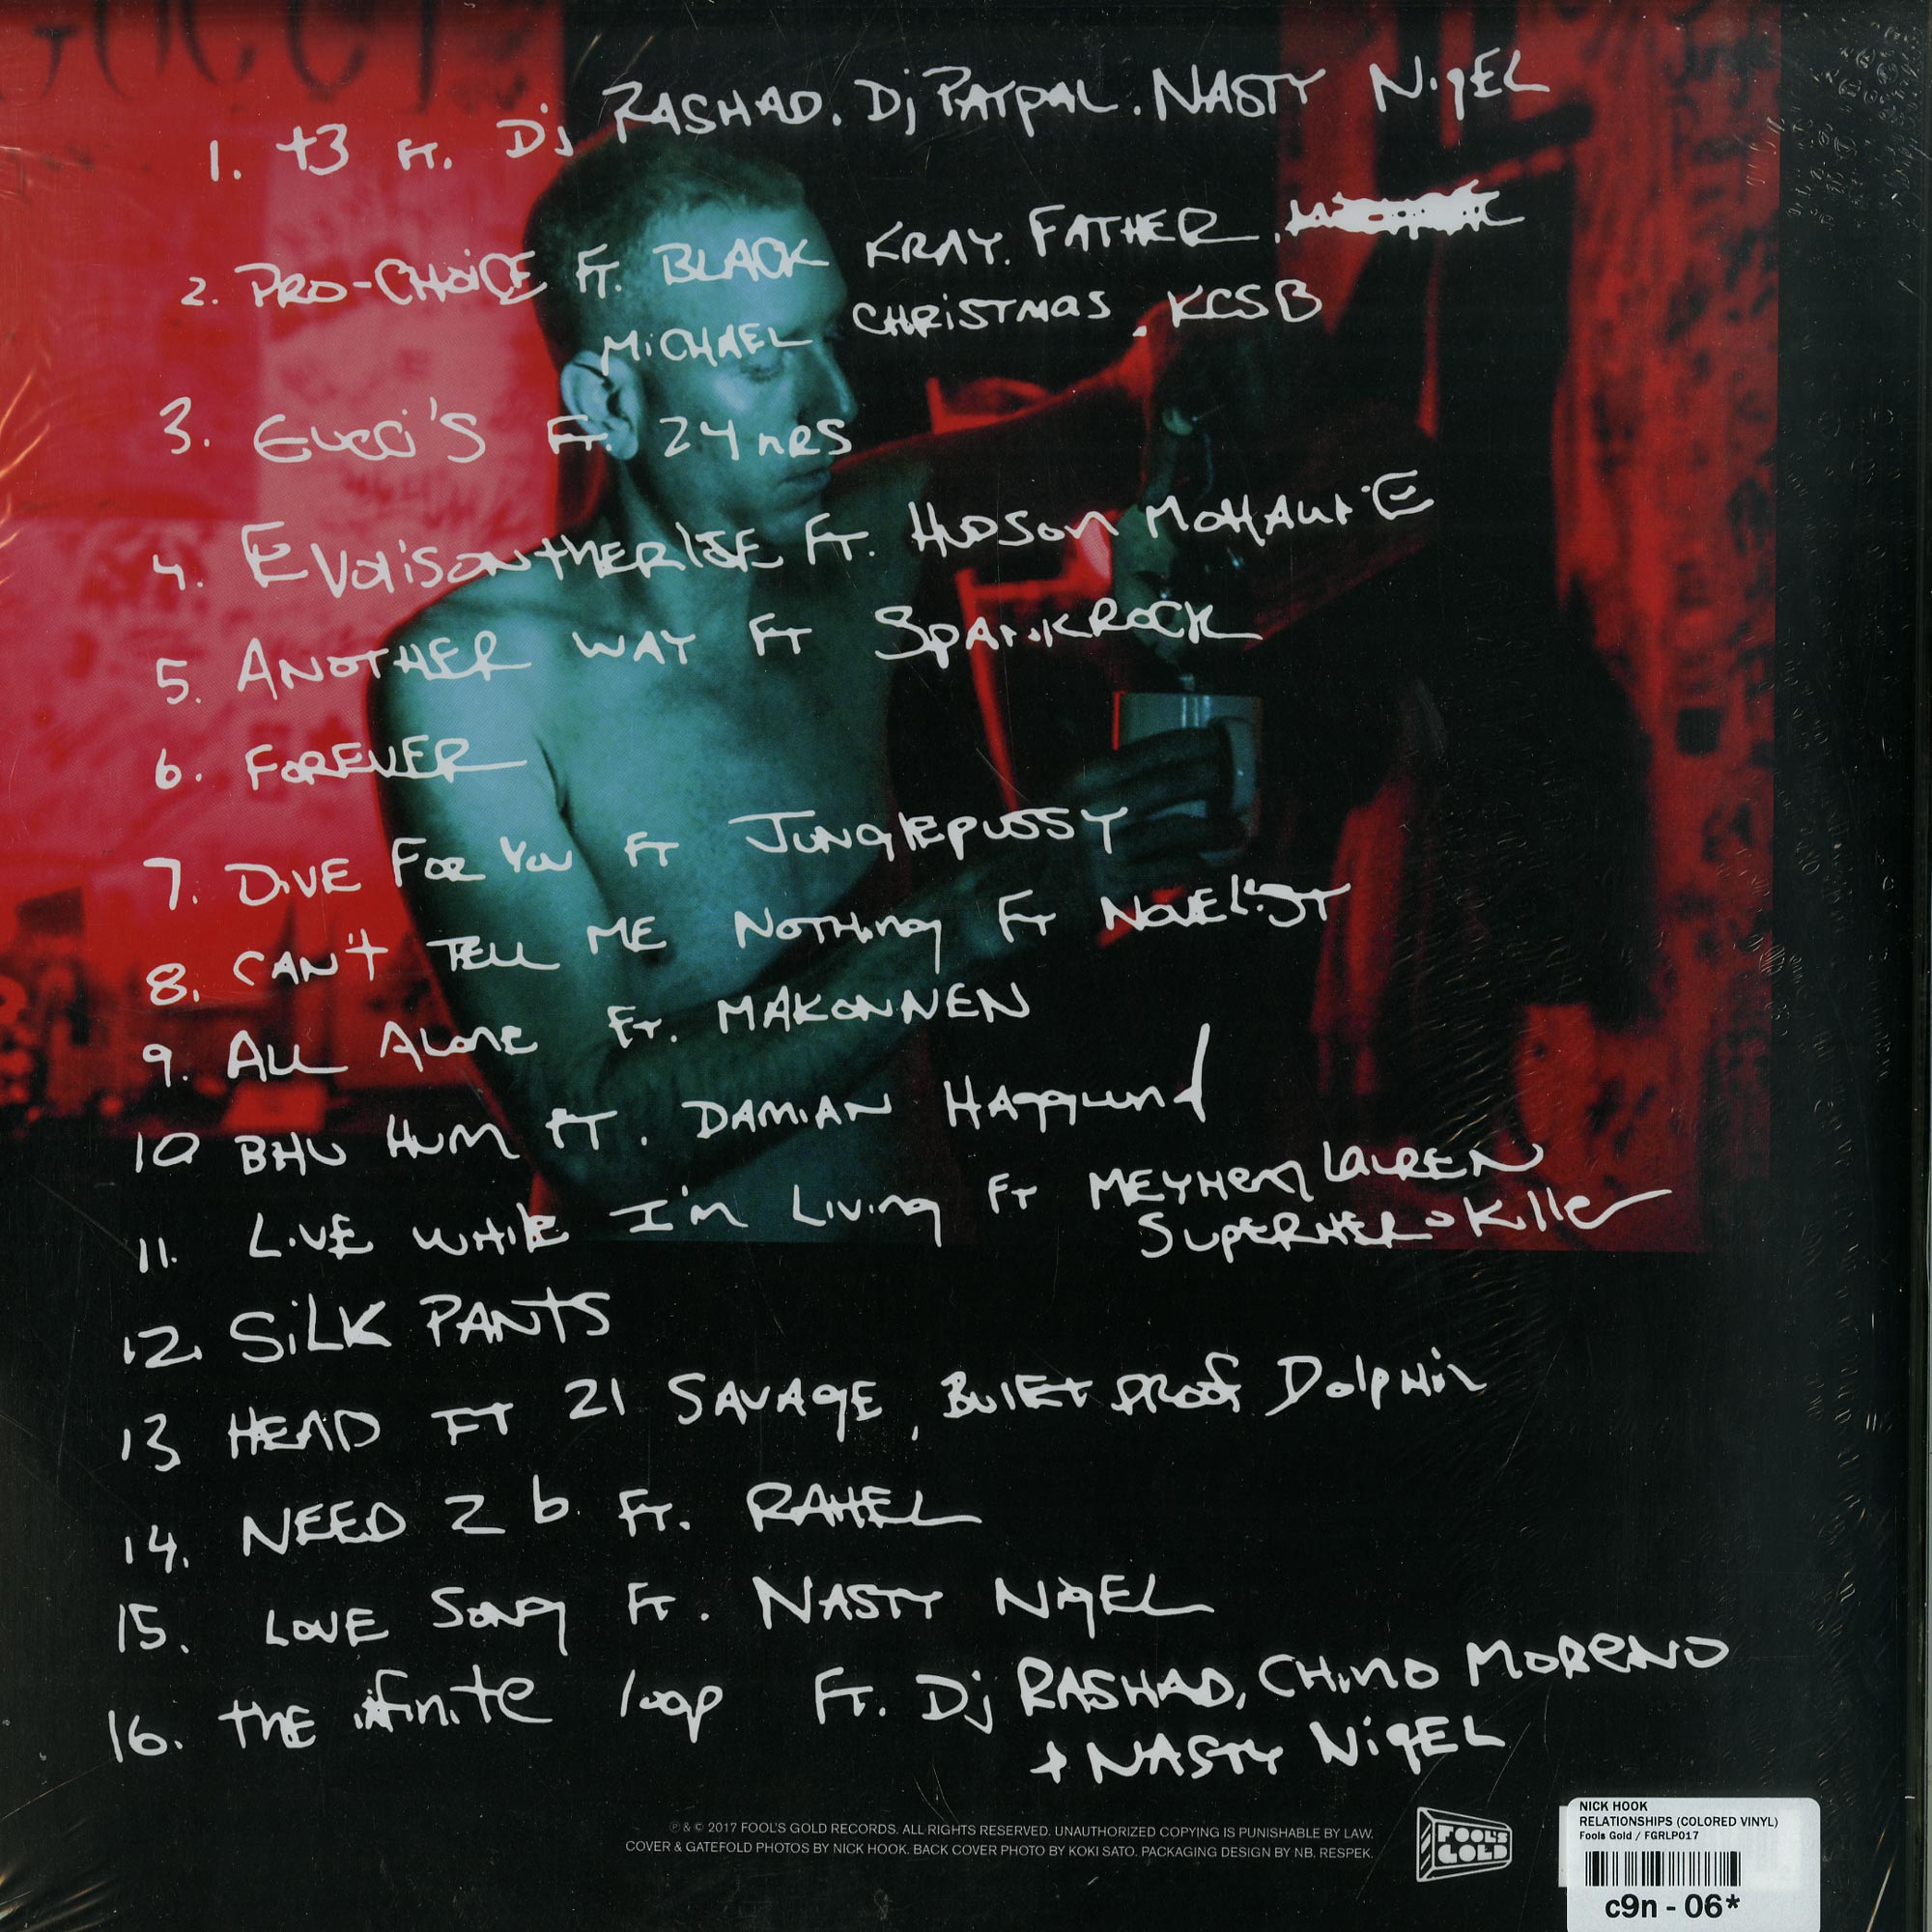 GUCCI
1. t3 FT. Dj RASHAD. Dj PAYPAL. NASTY NIGEL
2. PRO-CHOICE FT. BLACK KRAY. FATHER.
MICHAEL CHRISTMAS. KCSB
3. GUCCI'S FT. 24HRS
4. EVOLISONTHERISE FT. HUDSON MOHAWKE
5. ANOTHER WAY FT SPANKROCK
6. FOREVER
7. DIVE FOR YOU FT JUNGLEPUSSY
8. CAN'T TELL ME NOTHING FT NOVELIST
9. ALL ALONE FT. MAKONNEN
10 BHU HUM FT. DAMIAN HAGGLUND
11. LIVE WHILE I'm LIVING FT MEYHEM LAUREN
SUPERHERO KILLER
12. SILK PANTS
13 HEAD FT 21 SAVAGE, BULLET PROOF DOLPHIN
14. NEED 2 b FT. RAHEL
15. LOVE SONG FT. NASTY NIGEL
16. THE infinite loop FT. Dj RASHAD, CHINO MORENO
+ NASTY NIGEL
℗ & © 2017 FOOL'S GOLD RECORDS. ALL RIGHTS RESERVED. UNAUTHORIZED COPYING IS PUNISHABLE BY LAW.
COVER & GATEFOLD PHOTOS BY NICK HOOK. BACK COVER PHOTO BY KOKI SATO. PACKAGING DESIGN BY NB. RESPEK.
FOOL'S
GOLD
NICK HOOK
RELATIONSHIPS (COLORED VINYL)
Fools Gold / FGRLP017
c9n - 06*